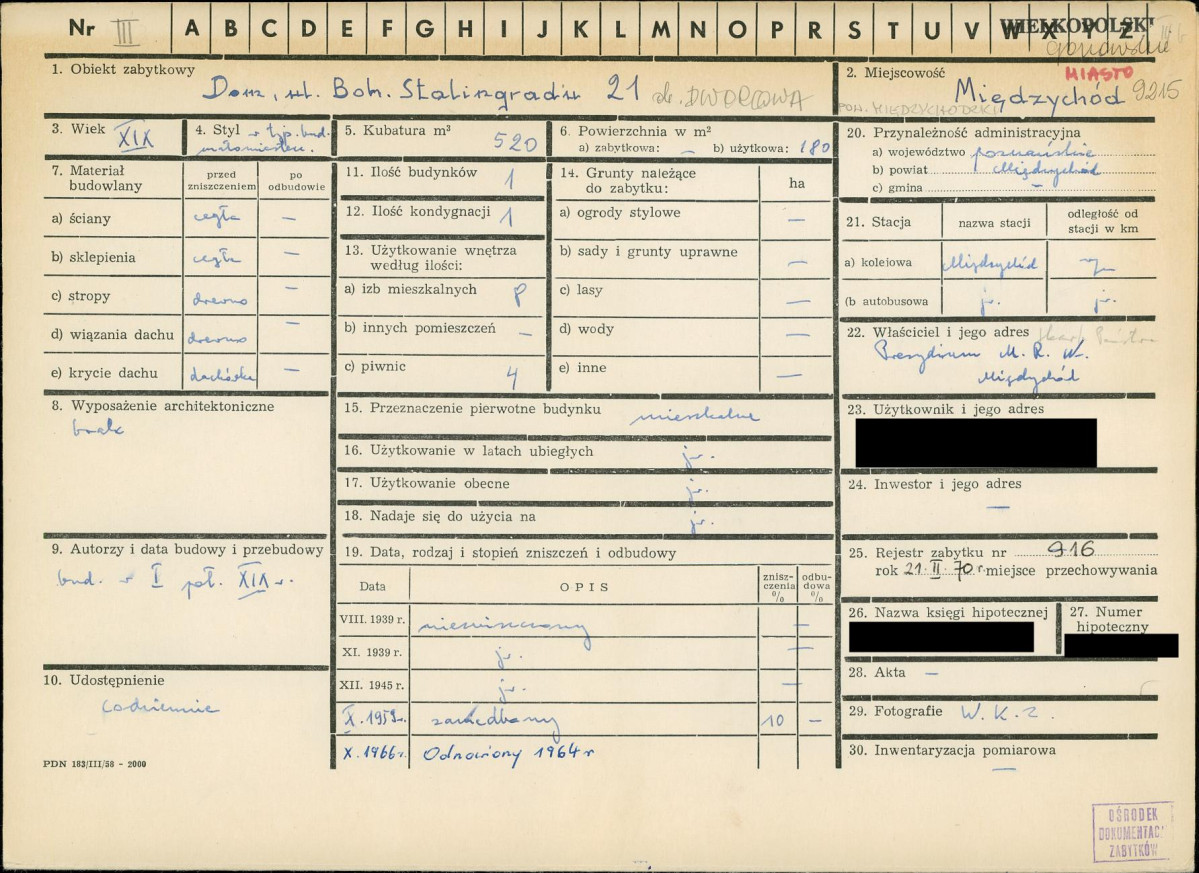 Nr III A B C D E F G H I J K L M N O P R S T U V W X Y Z
WIELKOPOLSKI
gorzowskie
1. Obiekt zabytkowy
Dom, ul. Boh. Stalingradu 21 ob. DWORCOWA
2. Miejscowość
MIASTO
Międzychód 9215
POW. MIĘDZYCHODZKI
3. Wiek XIX
4. Styl w typ. bud.
małomiasteczk.
5. Kubatura m³
520
6. Powierzchnia w m²
a) zabytkowa: — b) użytkowa: 180
7. Materiał budowlany
przed zniszczeniem
po odbudowie
a) ściany cegła —
b) sklepienia cegła —
c) stropy drewno —
d) wiązania dachu drewno —
e) krycie dachu dachówka —
8. Wyposażenie architektoniczne
brak
9. Autorzy i data budowy i przebudowy
bud. w I poł. XIX w.
10. Udostępnienie
codziennie
PDN 183/III/58 - 2000
11. Ilość budynków 1
12. Ilość kondygnacji 1
13. Użytkowanie wnętrza
według ilości:
a) izb mieszkalnych 8
b) innych pomieszczeń —
c) piwnic 4
14. Grunty należące
do zabytku: ha
a) ogrody stylowe —
b) sady i grunty uprawne —
c) lasy —
d) wody —
e) inne —
15. Przeznaczenie pierwotne budynku mieszkalne
16. Użytkowanie w latach ubiegłych jw.
17. Użytkowanie obecne jw.
18. Nadaje się do użycia na jw.
19. Data, rodzaj i stopień zniszczeń i odbudowy
Data OPIS zniszczenia % odbudowa %
VIII. 1939 r. niezniszczony —
XI. 1939 r. jw. —
XII. 1945 r. jw. —
X. 1959 r. zaniedbany 10 —
X. 1966 r. Odnowiony 1964 r
20. Przynależność administracyjna
a) województwo poznańskie
b) powiat Międzychód
c) gmina —
21. Stacja nazwa stacji odległość od stacji w km
a) kolejowa Międzychód
(b autobusowa jw. jw.
22. Właściciel i jego adres Skarb Państwa
Prezydium M. R. N.
Międzychód
23. Użytkownik i jego adres
24. Inwestor i jego adres
—
25. Rejestr zabytku nr 916
rok 21. II. 70 r. miejsce przechowywania
26. Nazwa księgi hipotecznej
27. Numer hipoteczny
28. Akta —
29. Fotografie W. K. Z.
30. Inwentaryzacja pomiarowa
—
OŚRODEK
DOKUMENTACJI
ZABYTKÓW